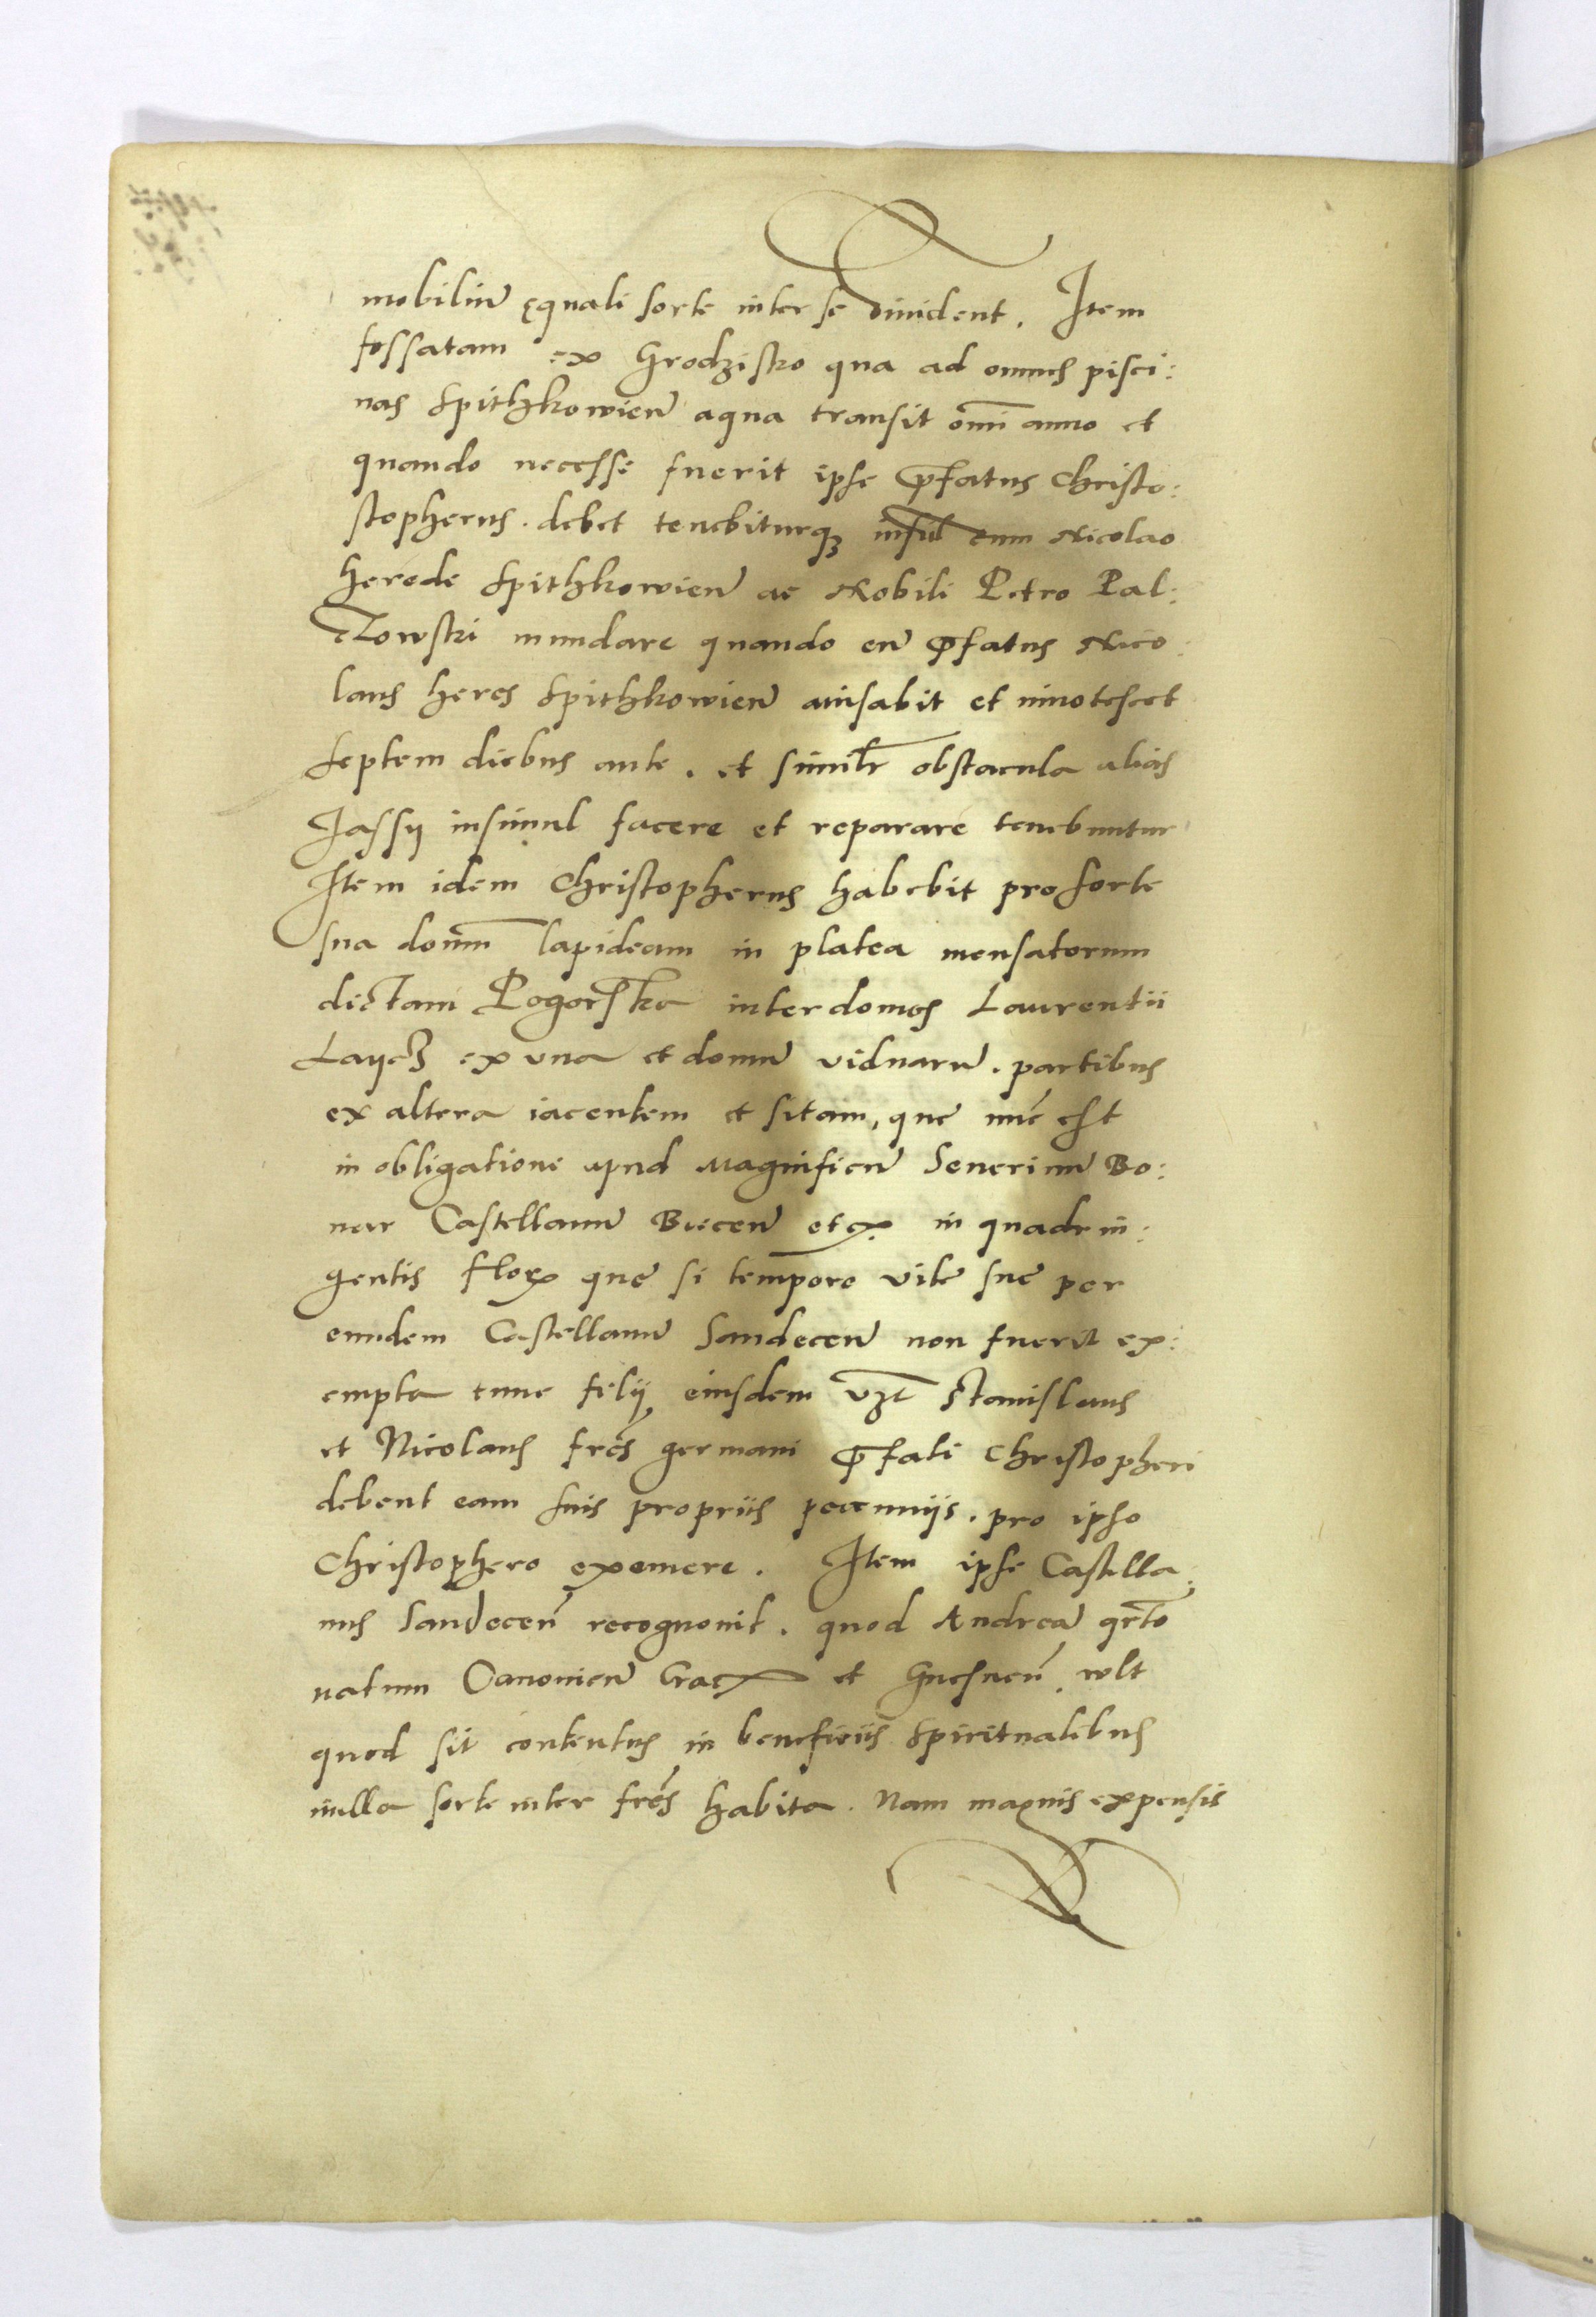 mobiliũ ęquali sorte inter se diuident. Item
fossatam ex Grodzisko qua ad omnes pisci:
nas Spithkowieñ aqua transit om̃i anno et
quando necesse fuerit ipse p̃fatus Christo:
stopherus. debet tenebiturqȝ insi͂l cum Nicolao
herede Spithkowieñ ac Nobili Petro Pal:
czowski mundare quando eũ p̃fatus Nico:
laus heres Spithkowieñ auisabit et innotescet
septem diebus ante. et simil̃r obstacula alias
Jassy insimul facere et reparare tenebuntur
Item idem Christopherus habebit pro sorte
sua domũ lapideam in platea mensatorum
dictam Pogorska inter domos Laurentii
Laycȝ ex vna et domũ viduarũ. partibus
ex altera iacentem et sitam, que nũc est
in obligatione apud Magnificũ Seuerinũ Bo:
nar Castellanũ Bieceñ etcꝝ in quadrin:
gentis floꝝ que si tempore vite sue per
eundem Castellanũ Sandeceñ non fuerit ex:
empta tunc filij eiusdem vȝt Stanislaus
et Nicolaus fr̃es germani p̃fati Christopheri
debent eam suis propriis pecuniis. pro ipso
Christophero exemere. Item ipse Castella:
nus Sandeceñ recognouit. quod Andreã qr̃to
natum Canonicũ Cracꝝ et Gnesneñ. wlt
quod sit contentus in beneficiis spiritualibus
nulla sorte inter fr̃es habita. Nam magnis expensis